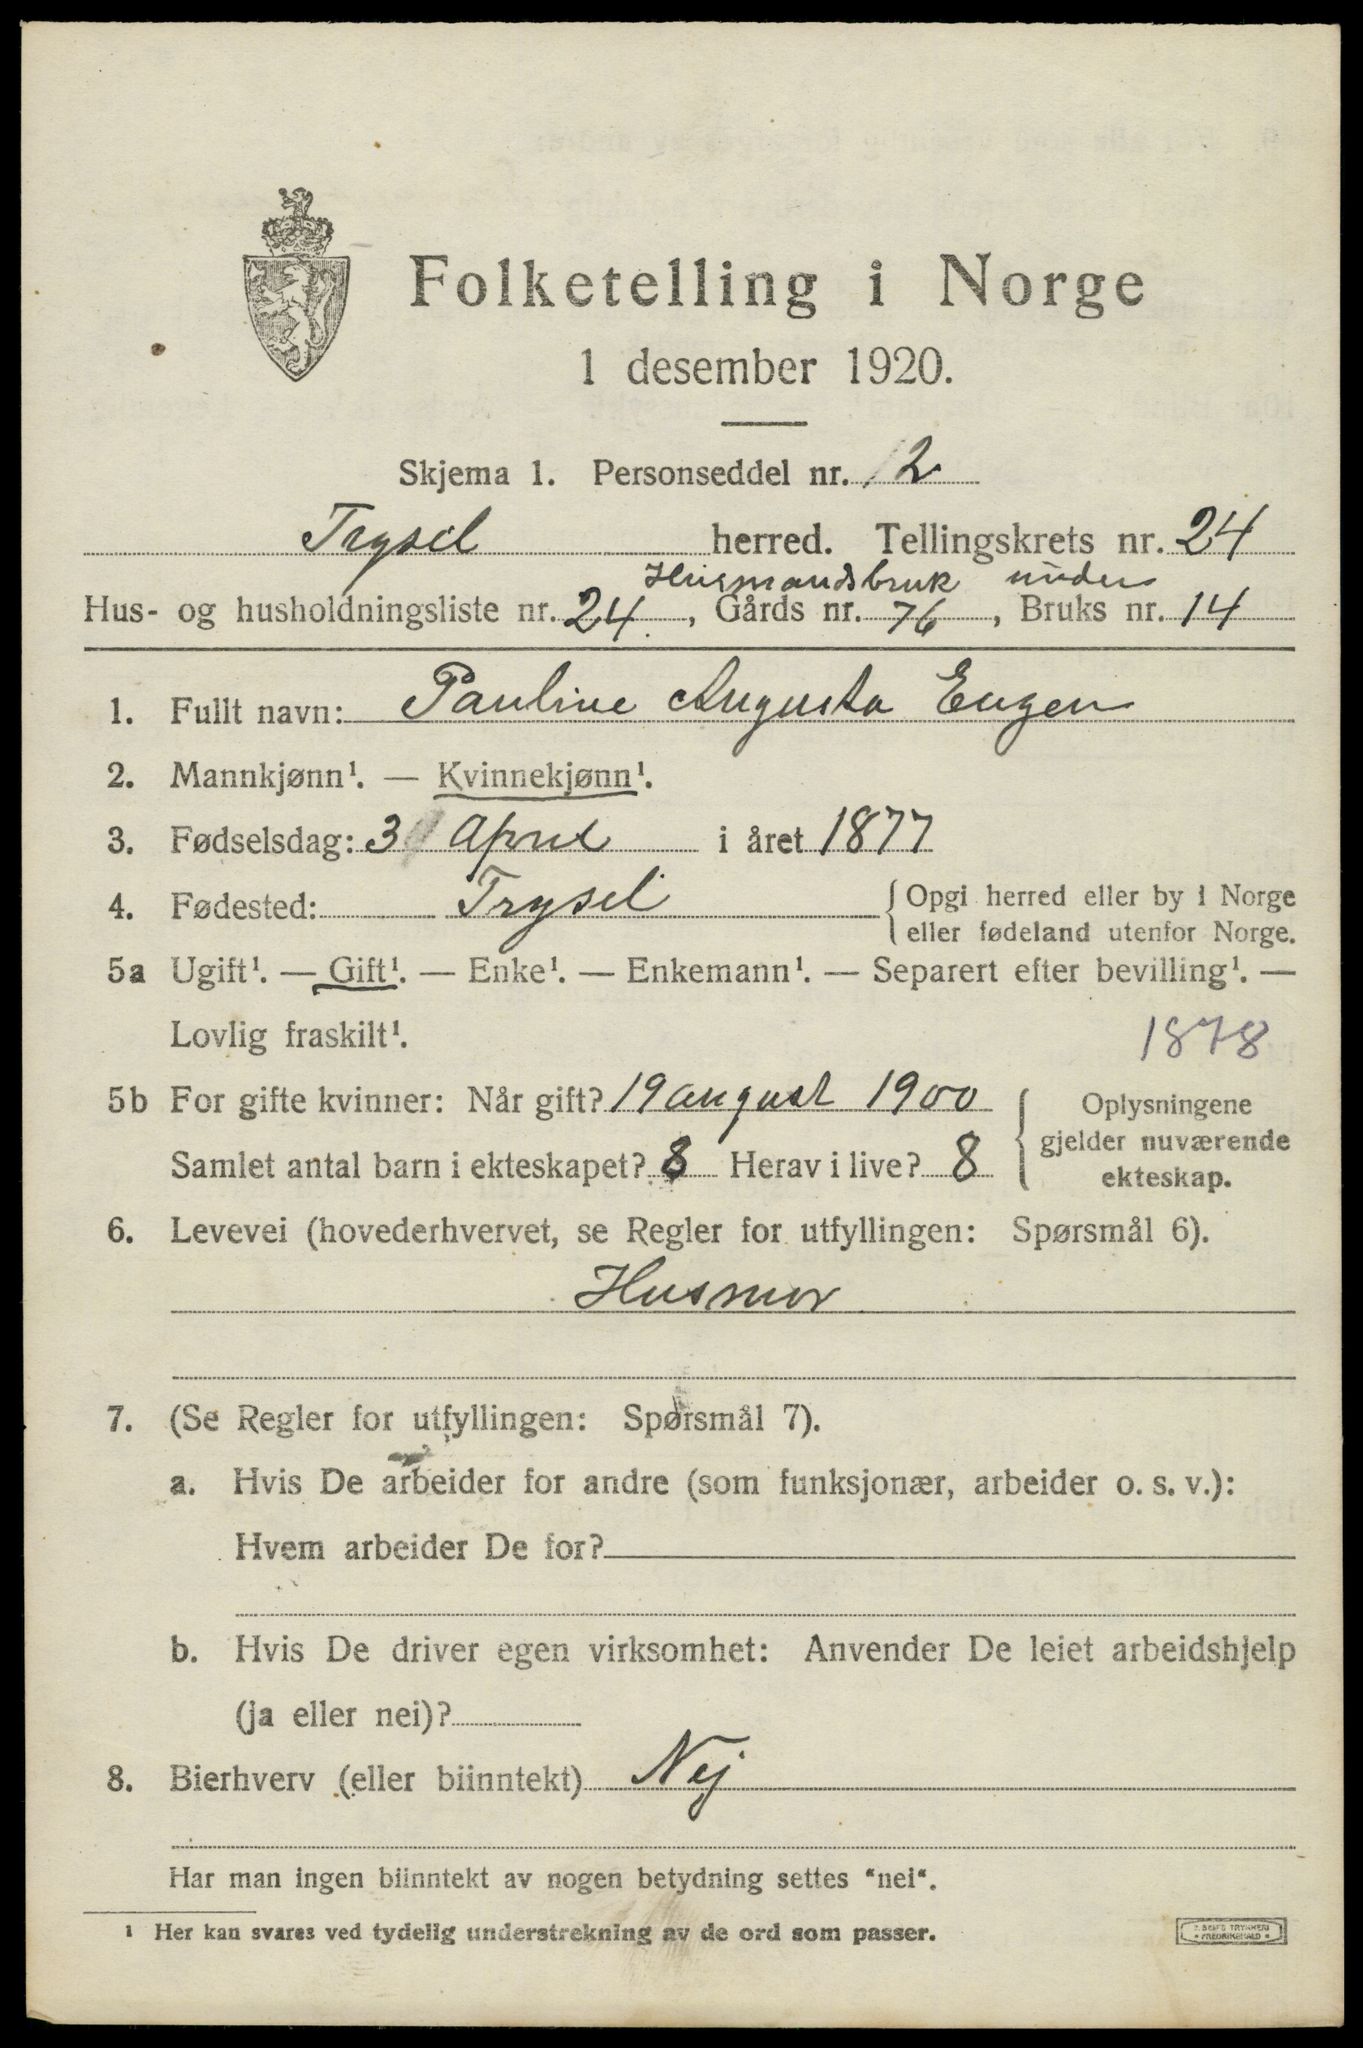 Folketelling i Norge
1 desember 1920.
Skjema 1. Personseddel nr. 2
Trysil herred. Tellingskrets nr. 24
Husmandsbruk under
Hus- og husholdningsliste nr. 24, Gårds nr. 76, Bruks nr. 14
1. Fullt navn: Pauline Augusta Engen
2. Mannkjønn¹. — Kvinnekjønn¹.
3. Fødselsdag: 3 April i året 1877
4. Fødested: Trysil { Opgi herred eller by i Norge
eller fødeland utenfor Norge.
5a Ugift¹. — Gift¹. — Enke¹. — Enkemann¹. — Separert efter bevilling¹. —
Lovlig fraskilt¹. 1878
5b For gifte kvinner: Når gift? 19 august 1900 { Oplysningene
gjelder nuværende
Samlet antal barn i ekteskapet? 8 Herav i live? 8 ekteskap.
6. Levevei (hovederhvervet, se Regler for utfyllingen: Spørsmål 6).
Husmor
7. (Se Regler for utfyllingen: Spørsmål 7).
a. Hvis De arbeider for andre (som funksjonær, arbeider o. s. v.):
Hvem arbeider De for?
b. Hvis De driver egen virksomhet: Anvender De leiet arbeidshjelp
(ja eller nei)?
8. Bierhverv (eller biinntekt) Nej
Har man ingen biinntekt av nogen betydning settes "nei".
¹ Her kan svares ved tydelig understrekning av de ord som passer.